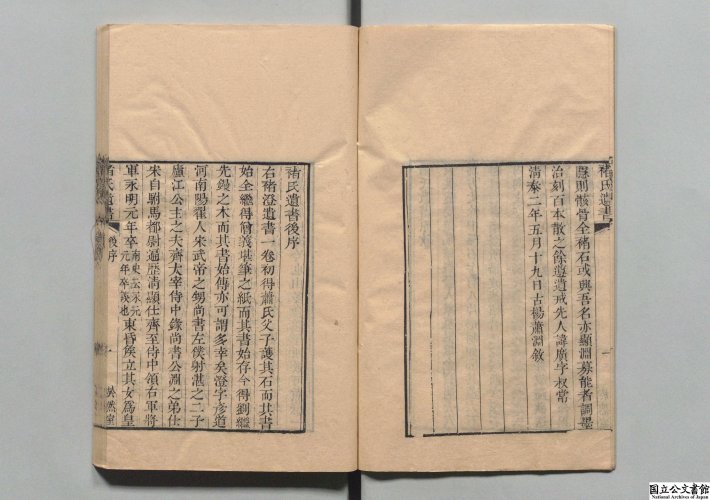 褚氏遺書
隱則骸骨全褚石或興吾名亦顯淵募能者調墨
治刻百本散之餘遵遺戒先人諱廣字叔常
清泰二年五月十九日古揚蕭淵敘
褚氏遺書後序
右褚澄遺書一卷初得蕭氏父子護其石而其書
始全繼得僧義堪筆之紙而其書始存今得劉繼
先鋟之木而其書始傳亦可謂多幸矣澄字彥道
河南陽翟人宋武帝之甥尚書左僕射湛之二子
廬江公主之夫齊太宰侍中錄尚書公淵之弟仕
宋自駙馬都尉遍歷清顯仕齊至侍中領右軍將
軍永明元年卒南史云永元元年卒誤也東昏侯立其女爲皇
褚氏遺書
後序
一
国立公文書館
National Archives of Japan